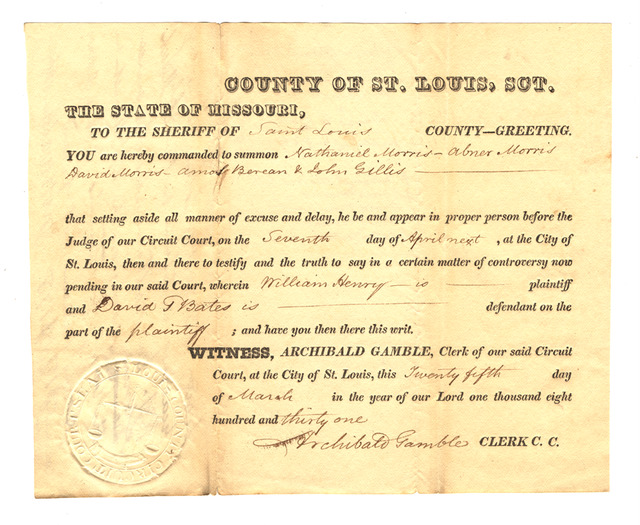 COUNTY OF ST. LOUIS, SCT.
THE STATE OF MISSOURI,
TO THE SHERIFF OF Saint Louis COUNTY—GREETING.
YOU are hereby commanded to summon Nathaniel Morris - Abner Morris
David Morris - Amos Berean & John Gillis
that setting aside all manner of excuse and delay, he be and appear in proper person before the
Judge of our Circuit Court, on the Seventh day of April next, at the City of
St. Louis, then and there to testify and the truth to say in a certain matter of controversy now
pending in our said Court, wherein William Henry - is plaintiff
and David T Bates is defendant on the
part of the plaintiff ; and have you then there this writ.
WITNESS, ARCHIBALD GAMBLE, Clerk of our said Circuit
Court, at the City of St. Louis, this Twenty fifth day
of March in the year of our Lord one thousand eight
hundred and thirty one
Archibald Gamble CLERK C. C.